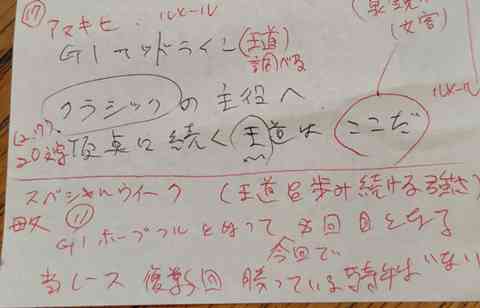 ⑰ アスキヒ ルメール
(女客)
GIヘッドライン(王道)
調べる
クラシックの主役へ
ルメール
20文字 頂点に続く王道は ここだ
スペシャルウイーク (王道を歩み続ける強さ)
⑪ GIホープフルとなって 8回目となる
今回で
当レース 複数回 勝っている騎手はいない